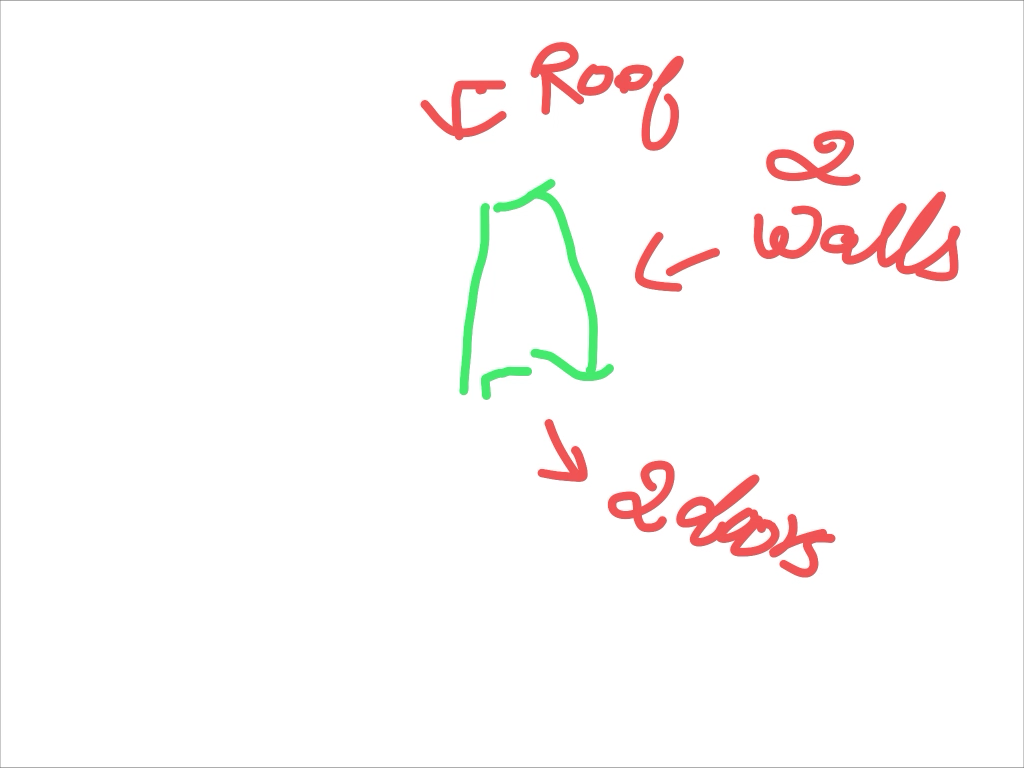 Roof
2
walls
2 doors